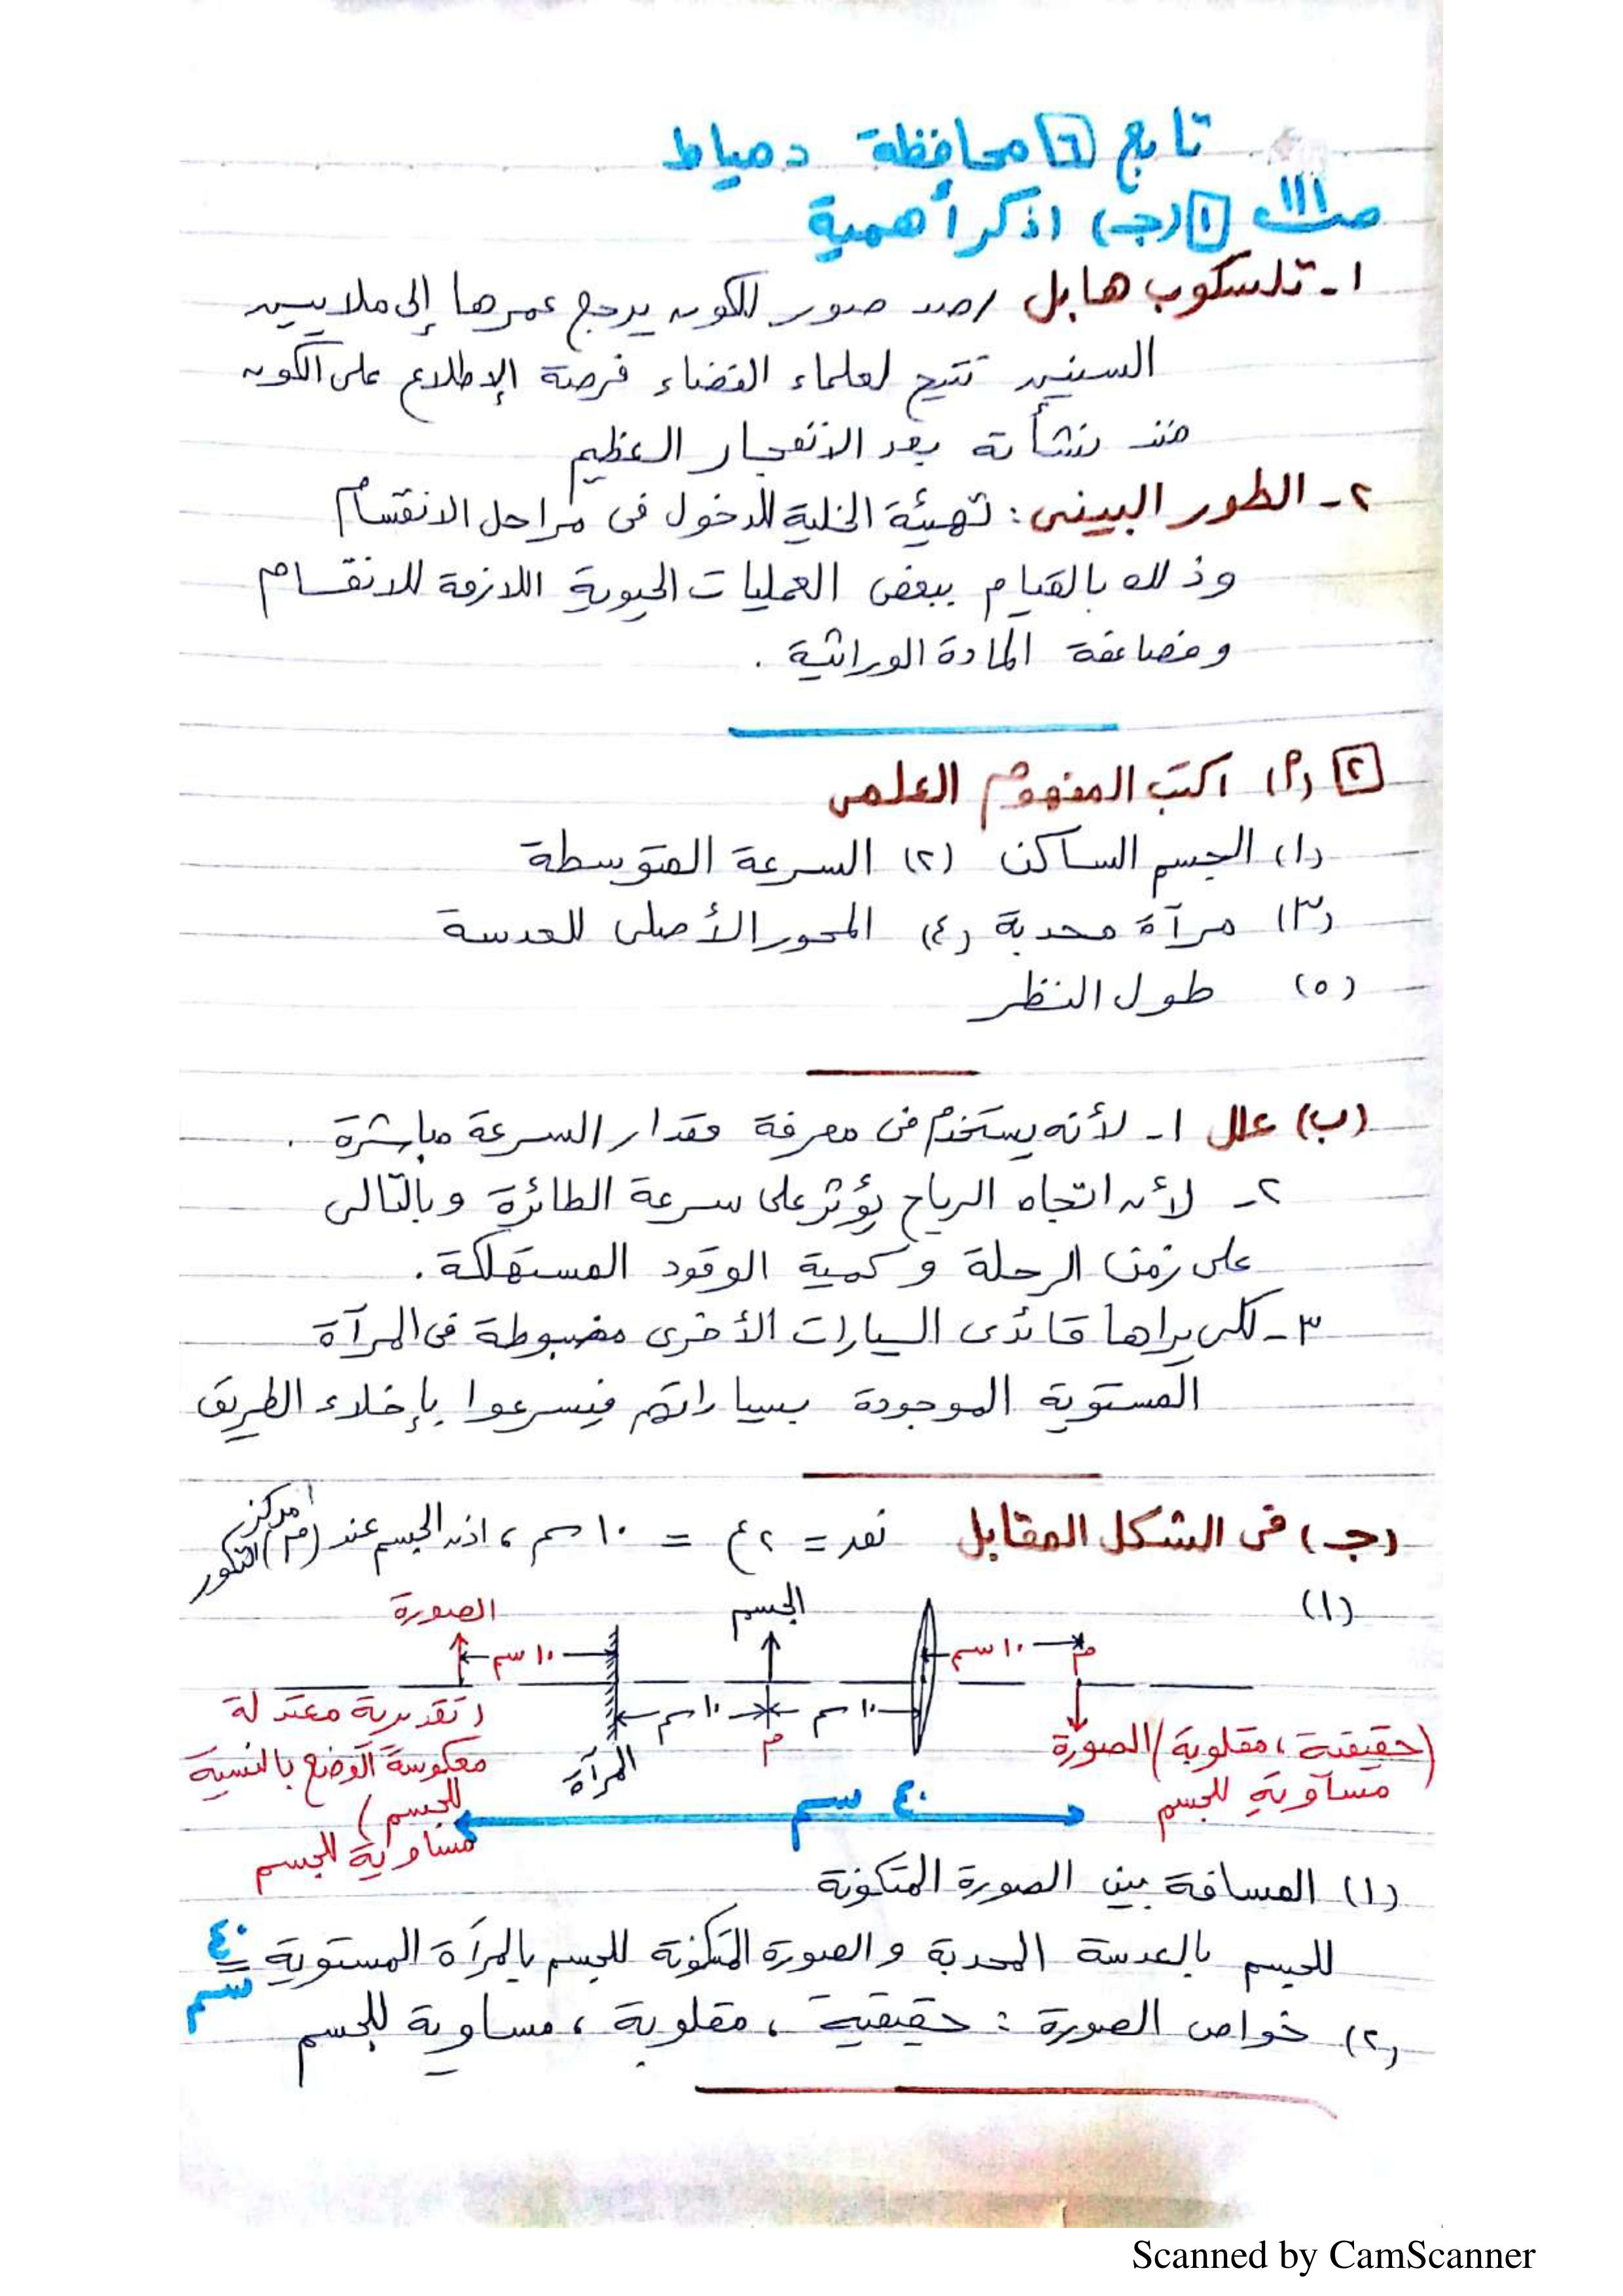 تابع [٦] محافظة دمياط
صـ ١١١ [١] (جـ) اذكر أهمية
١- تلسكوب هابل رصد صور للكون يرجع عمرها إلى ملايين
السنين تتيح لعلماء الفضاء فرصة الإطلاع على الكون
منذ نشأته بعد الانفجار العظيم
٢- الطور البينى : تهيئة الخلية للدخول فى مراحل الانقسام
وذلك بالقيام ببعض العمليات الحيوية اللازمة للانقسام
ومضاعفة المادة الوراثية .
[٢] (أ) اكتب المفهوم العلمى
(١) الجسم الساكن (٢) السرعة المتوسطة
(٣) مرآة محدبة (٤) المحور الأصلى للعدسة
(٥) طول النظر
(ب) علل ١- لأنه يستخدم فى معرفة مقدار السرعة مباشرة .
٢- لأن اتجاه الرياح يؤثر على سرعة الطائرة وبالتالى
على زمن الرحلة وكمية الوقود المستهلكة .
٣- لكى يراها قائدى السيارات الأخرى مضبوطة فى المرآة
المستوية الموجودة بسياراتهم فيسرعوا بإخلاء الطريق
(جـ) فى الشكل المقابل نعد = ٢ع = ١٠ سم ، اذن الجسم عند (م) مركز التكور
(١)
الصورة الجسم
١٠ سم ١٠ سم م
١٠ سم ١٠ سم
م
المرآة
(تقديرية معتدلة
معكوسة الوضع بالنسبة
للجسم)
مساوية للجسم
الصورة (حقيقية ، مقلوبة
مساوية للجسم
٤٠ سم
(١) المسافة بين الصورة المتكونة
للجسم بالعدسة المحدبة والصورة المتكونة للجسم بالمرآة المستوية = ٤٠ سم
(٢) خواص الصورة : حقيقية ، مقلوبة ، مساوية للجسم
Scanned by CamScanner